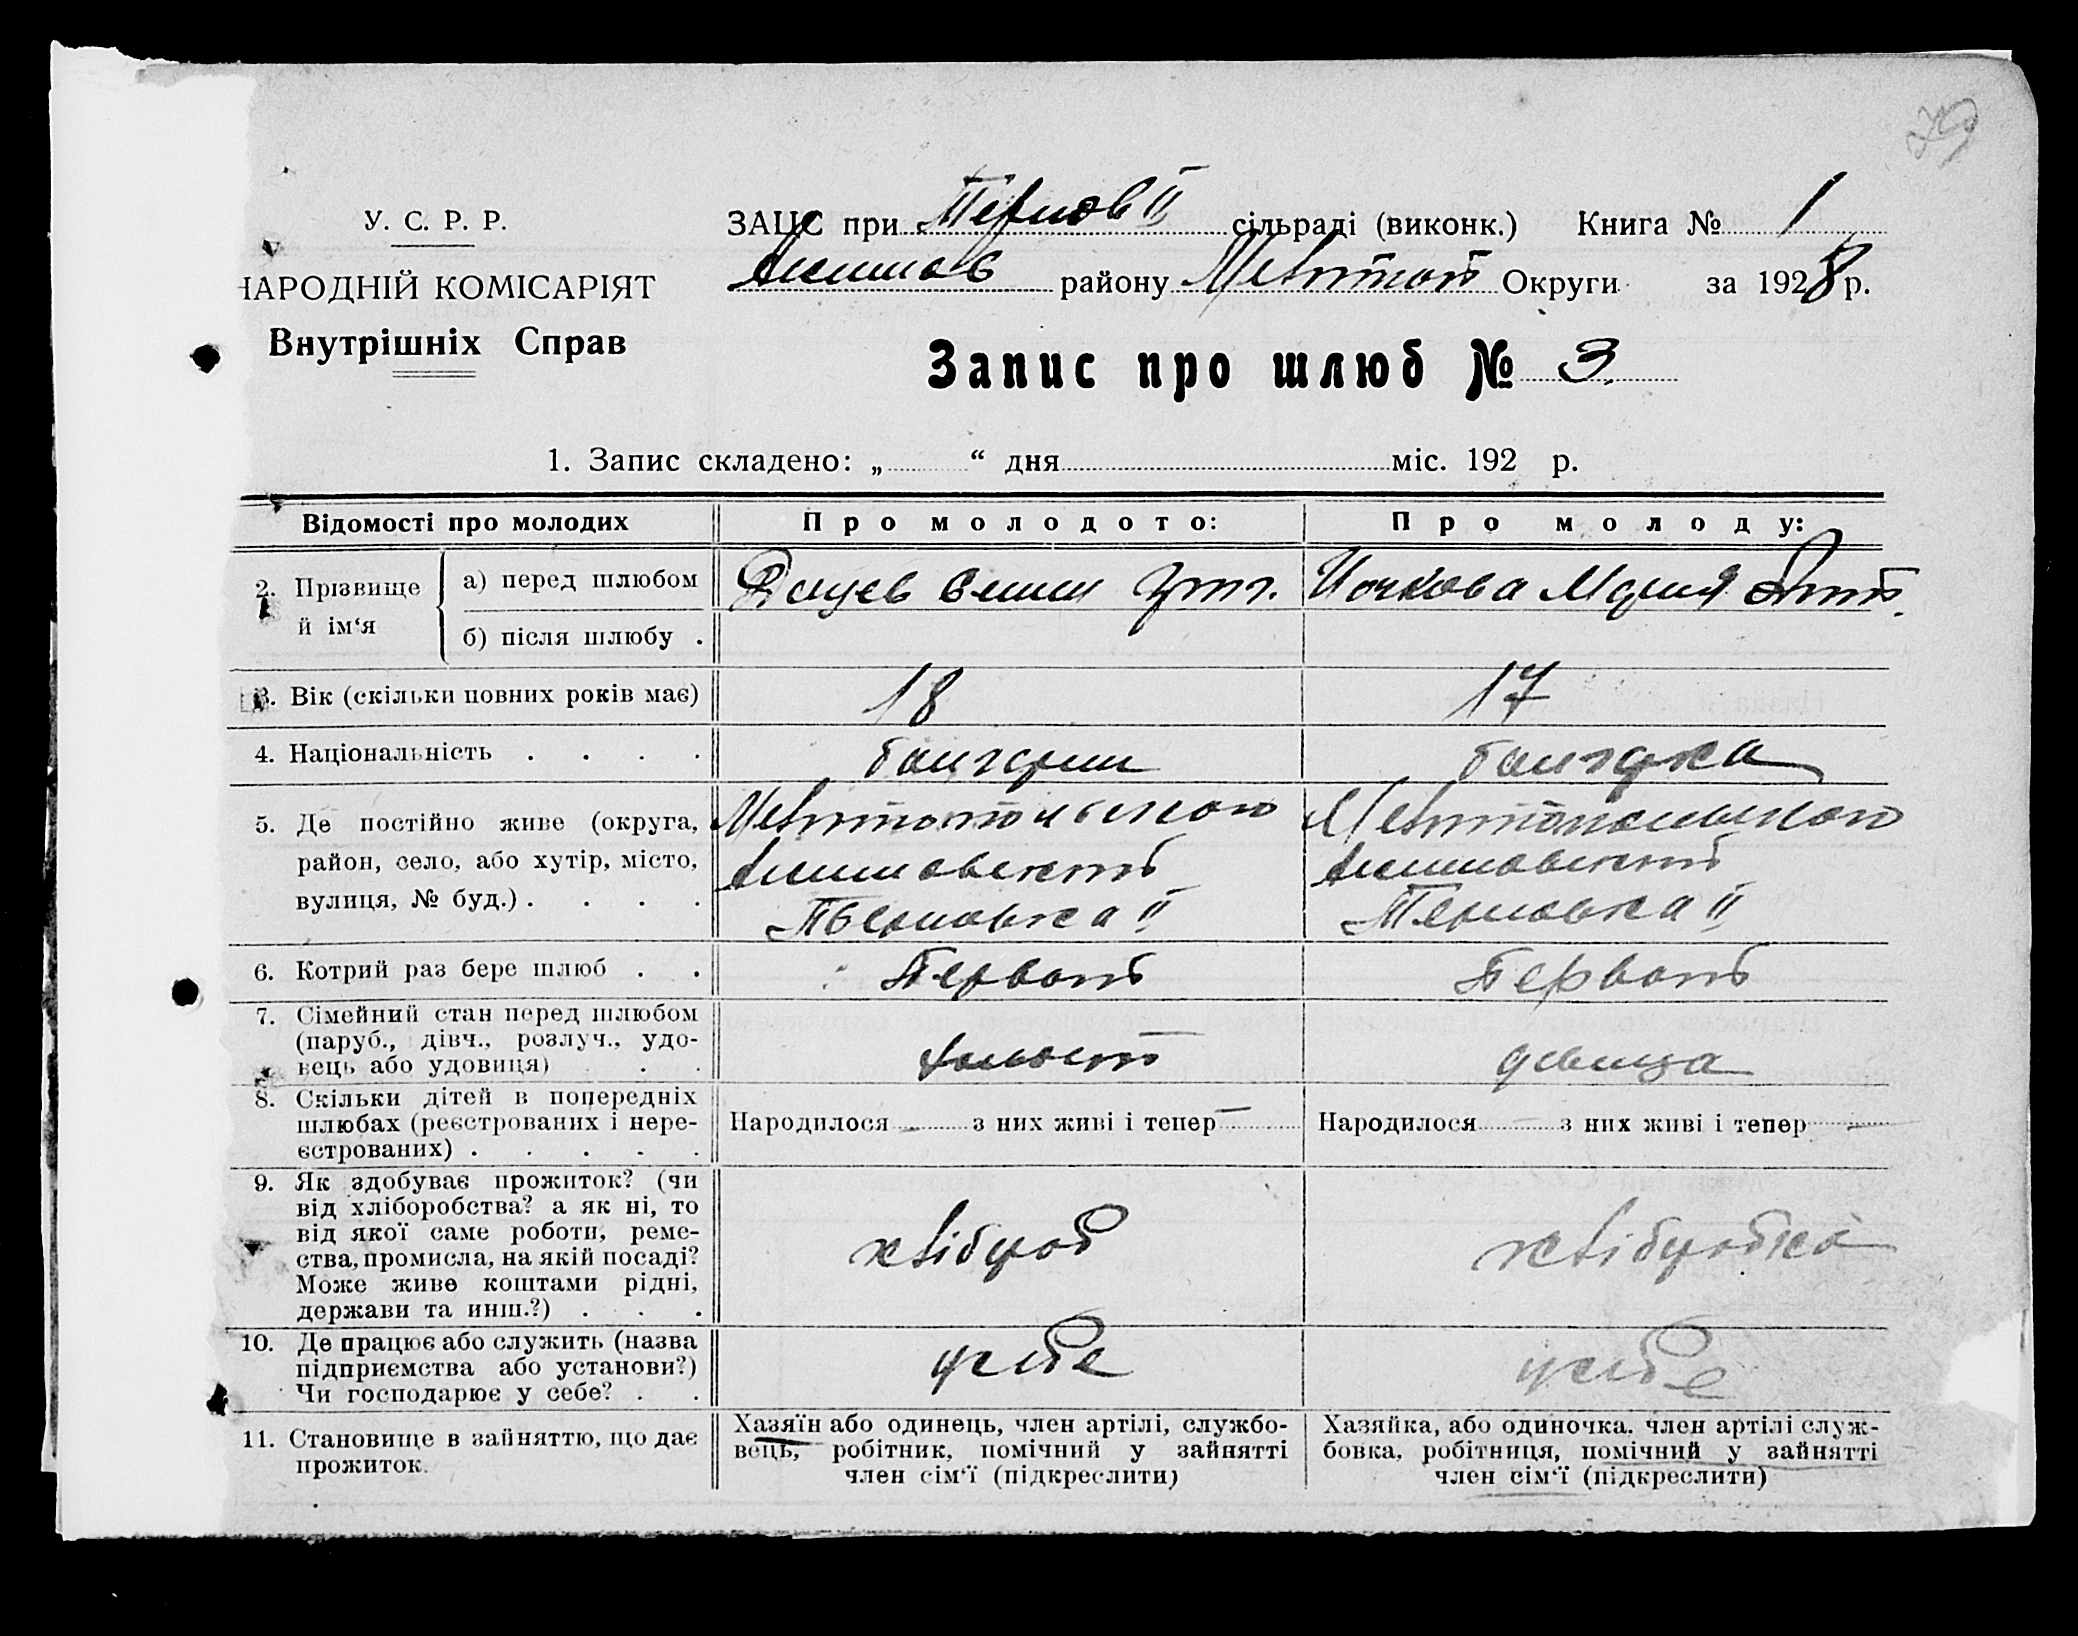 У. С. Р. Р.
НАРОДНІЙ КОМІСАРІЯТ
Внутрішніх Справ
29
ЗАЦС при Тернов II сільраді (виконк.) Книга № 1
Акимов району Меліттоп Округи за 1928 р.
Запис про шлюб № 3.
1. Запис складено: „ “ дня міс. 192 р.
Відомості про молодих
Про молодого:
Про молоду:
2. Прізвище й ім‘я
а) перед шлюбом
б) після шлюбу .
Григ.
Мария
3. Вік (скільки повних років має)
18
17
4. Національність . . . .
болгарин
болгарка
5. Де постійно живе (округа,
район, село, або хутір, місто,
вулиця, № буд.) . . . .
Акимовский
Терновка II
Акимовский
Терновка II
6. Котрий раз бере шлюб . .
Первой
Первой
7. Сімейний стан перед шлюбом
(паруб., дівч., розлуч., удо-
вець або удовиця) . .
холост
девица
8. Скільки дітей в попередніх
шлюбах (реєстрованих і нере-
єстрованих) . . . . .
Народилося — з них живі і тепер —
Народилося — з них живі і тепер —
9. Як здобуває прожиток? (чи
від хліборобства? а як ні, то
від якої саме роботи, реме-
ства, промисла, на якій посаді?
Може живе коштами рідні,
держави та инш.?) . . .
хлібороб
хліборобка
10. Де працює або служить (назва
підприємства або установи?)
Чи господарює у себе? . .
у себе
у себе
11. Становище в зайняттю, що дає
прожиток.
Хазяїн або одинець, член артілі, службо-
вець, робітник, помічний у зайнятті
член сім‘ї (підкреслити)
Хазяйка, або одиночка. член артілі служ-
бовка, робітниця, помічний у зайнятті
член сім‘ї (підкреслити)